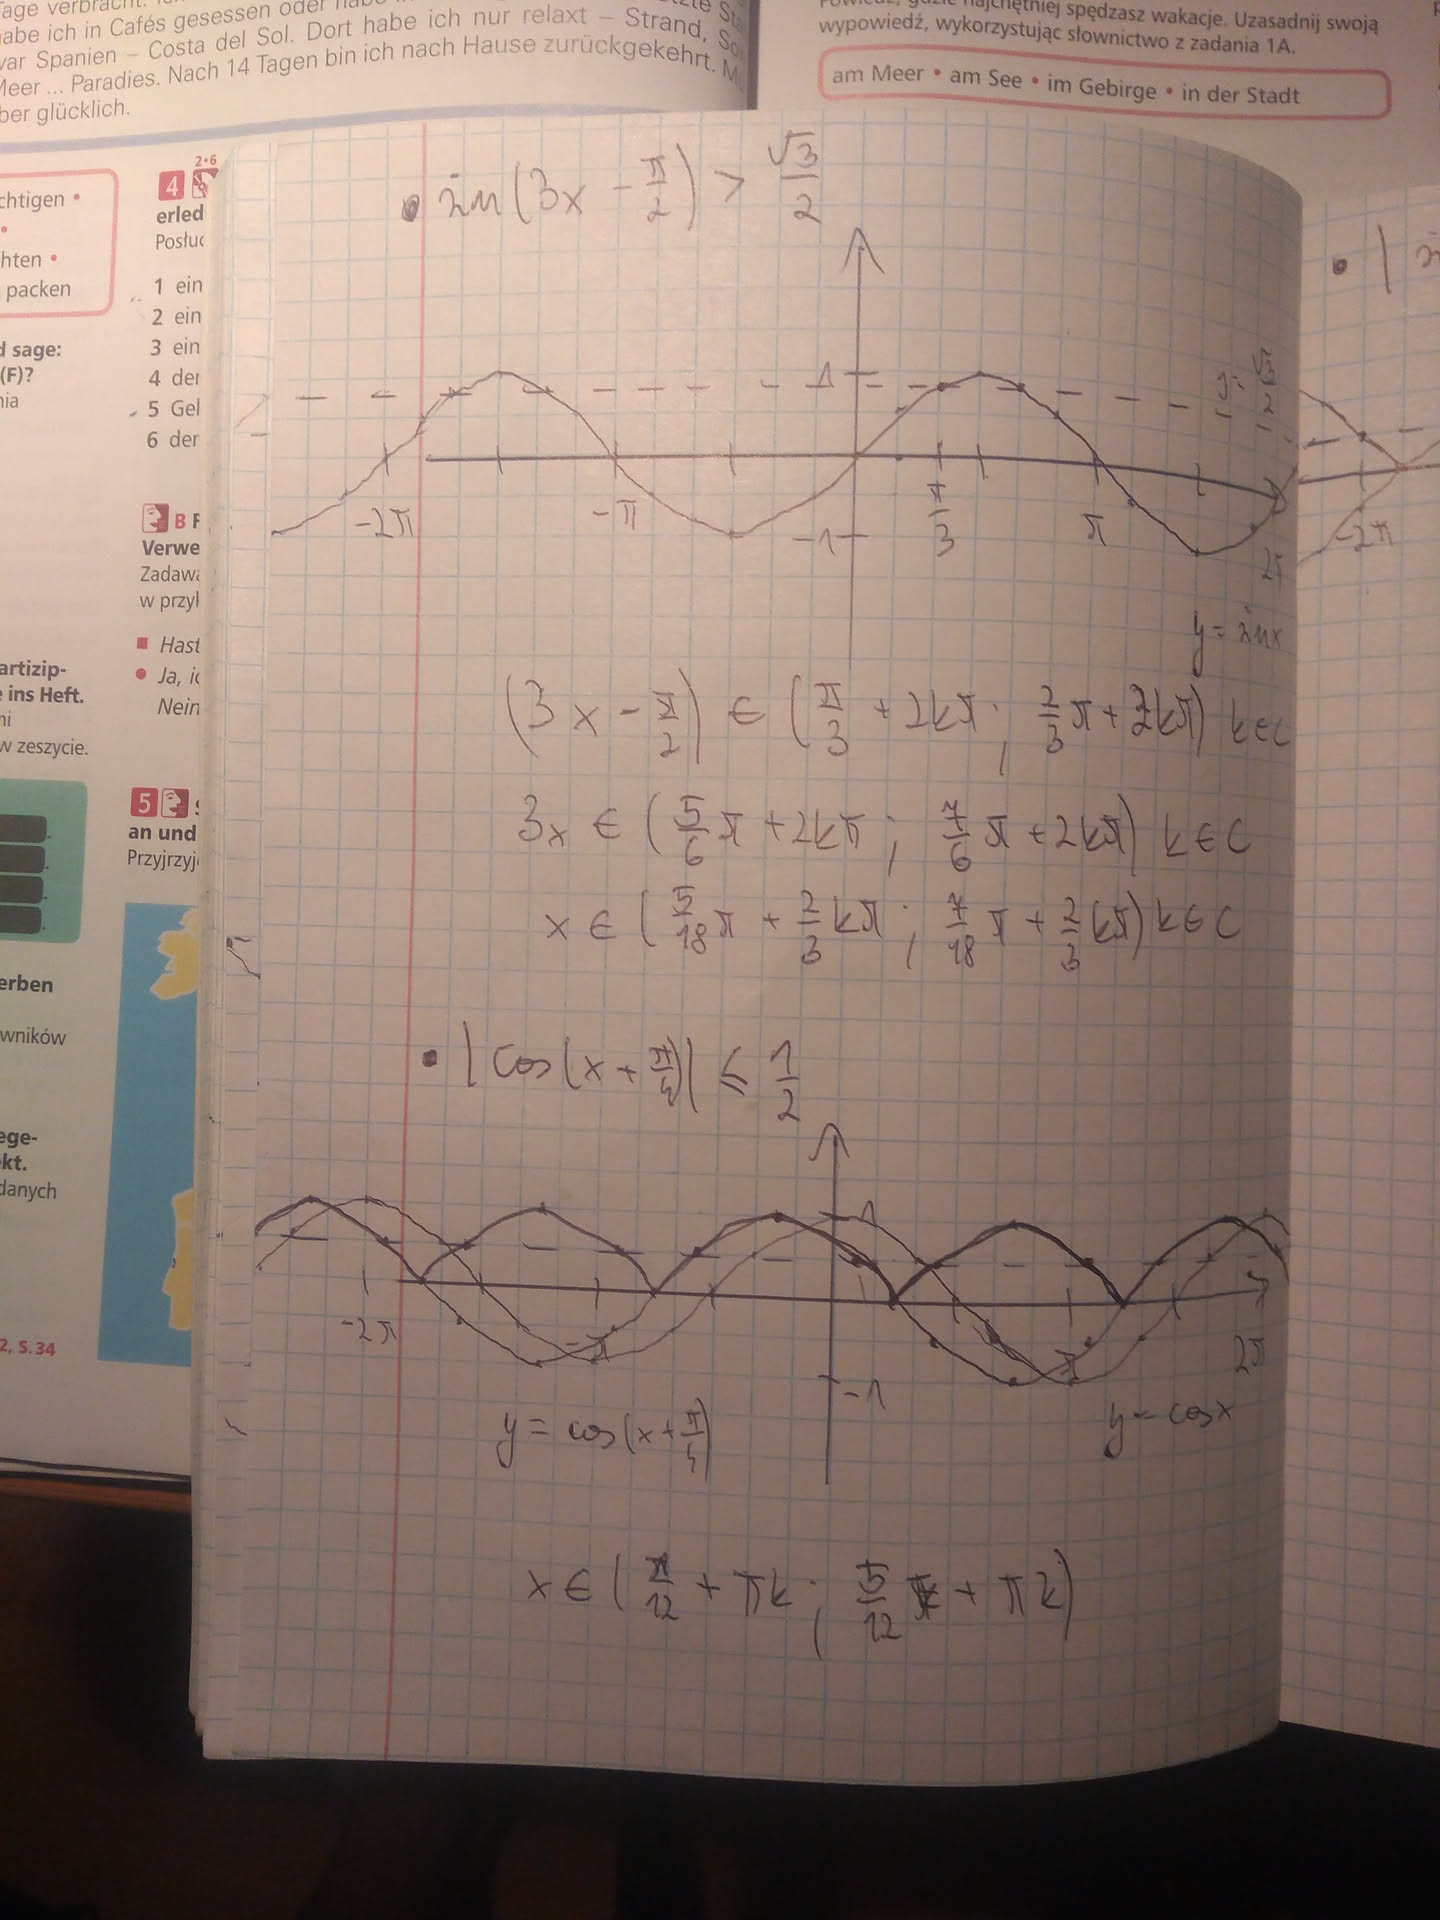 habe ich in Cafés gesessen oder
war Spanien – Costa del Sol. Dort habe ich nur relaxt – Strand,
Meer ... Paradies. Nach 14 Tagen bin ich nach Hause zurückgekehrt.
aber glücklich.
spędzasz wakacje. Uzasadnij swoją
wypowiedź, wykorzystując słownictwo z zadania 1A.
am Meer • am See • im Gebirge • in der Stadt
chtigen •
•
hten •
packen
d sage:
(F)?
nia
artizip-
e ins Heft.
ni
w zeszycie.
erben
wników
ege-
kt.
danych
2, S.34
2•6
4
erled
Posłuc
1 ein
2 ein
3 ein
4 der
5 Gel
6 der
B F
Verwe
Zadawa
w przyk
Hast
Ja, ic
Nein
5
an und
Przyjrzyj
sin(3x - π/2) > √3/2
1
y = √3/2
-2π
-π
π/3
π
2π
-1
y = sinx
(3x - π/2) ∈ (π/3 + 2kπ ; 2/3 π + 2kπ) k∈C
3x ∈ (5/6 π + 2kπ ; 7/6 π + 2kπ) k∈C
x ∈ (5/18 π + 2/3 kπ ; 7/18 π + 2/3 kπ) k∈C
|cos(x + π/4)| ≤ 1/2
1
-2π
-π
π
2π
-1
y = cos(x + π/4)
y = cosx
x ∈ (π/12 + πk ; 5/12 π + πk)
-2π